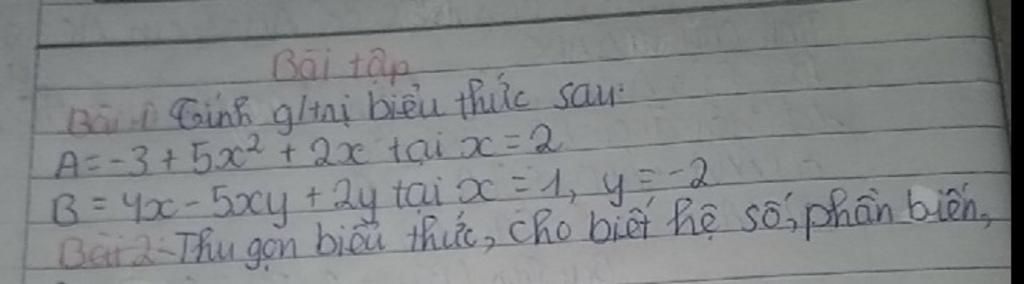 Bài tập
Bài 1: Tính g/trị biểu thức sau:
A = -3 + 5x² + 2x tại x = 2
B = 4x - 5xy + 2y tại x = 1, y = -2
Bài 2: Thu gọn biểu thức, cho biết hệ số, phần biến,